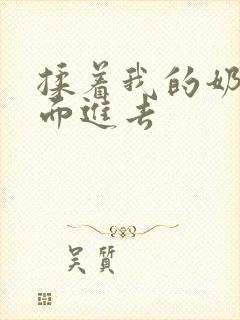 揉着我的奶
而进去
吴質